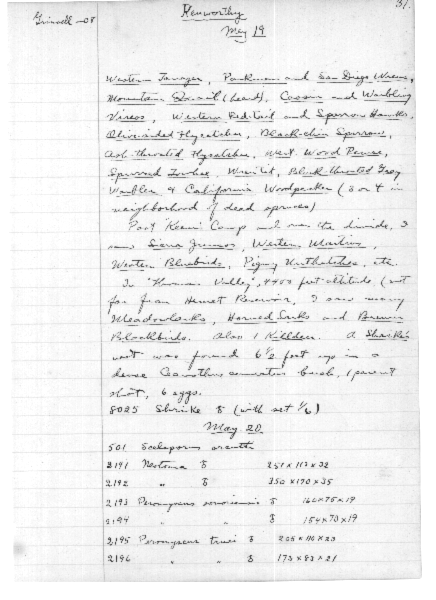 Grinnell - 08
31.
Kenworthy
May 19
Western Tanager, Parkman and San Diego Wrens,
Mountain Quail (heard), Cassin and Warbling
Vireos, Western Red-tail and Sparrow Hawks,
Olive-sided Flycatcher, Black-chin Sparrow,
Ash-throated Flycatcher, West. Wood Pewee,
Spurred Towhee, Wren-tit, Black-throated Gray
Warbler & California Woodpecker (3 or 4 in
neighborhood of dead spruces)
Past Keen Camp and over the divide, I
saw Sierra Juncos, Western Martins,
Western Bluebirds, Pigmy Nuthatches, etc.
In "Valley", 4400 feet altitude (not
far from Hemet Reservoir, I saw many
Meadowlarks, Horned Larks and Brewer
Blackbirds. Also 1 Killdeer. A Shrike's
nest was found 6 1/2 feet up in a
dense Ceanothus cuneatus bush, 1 parent
shot, 6 eggs.
8025 Shrike ♂ (with set 1/6)
May 20
501 Sceloporus orcutti
2191 Neotoma ♂ 251 x 117 x 32
2192 " ♂ 350 x 170 x 35
2193 Peromyscus ♂ 162 x 75 x 19
2194 " " ♂ 154 x 73 x 19
2195 Peromyscus truei ♂ 205 x 110 x 23
2196 " " ♂ 173 x 83 x 21